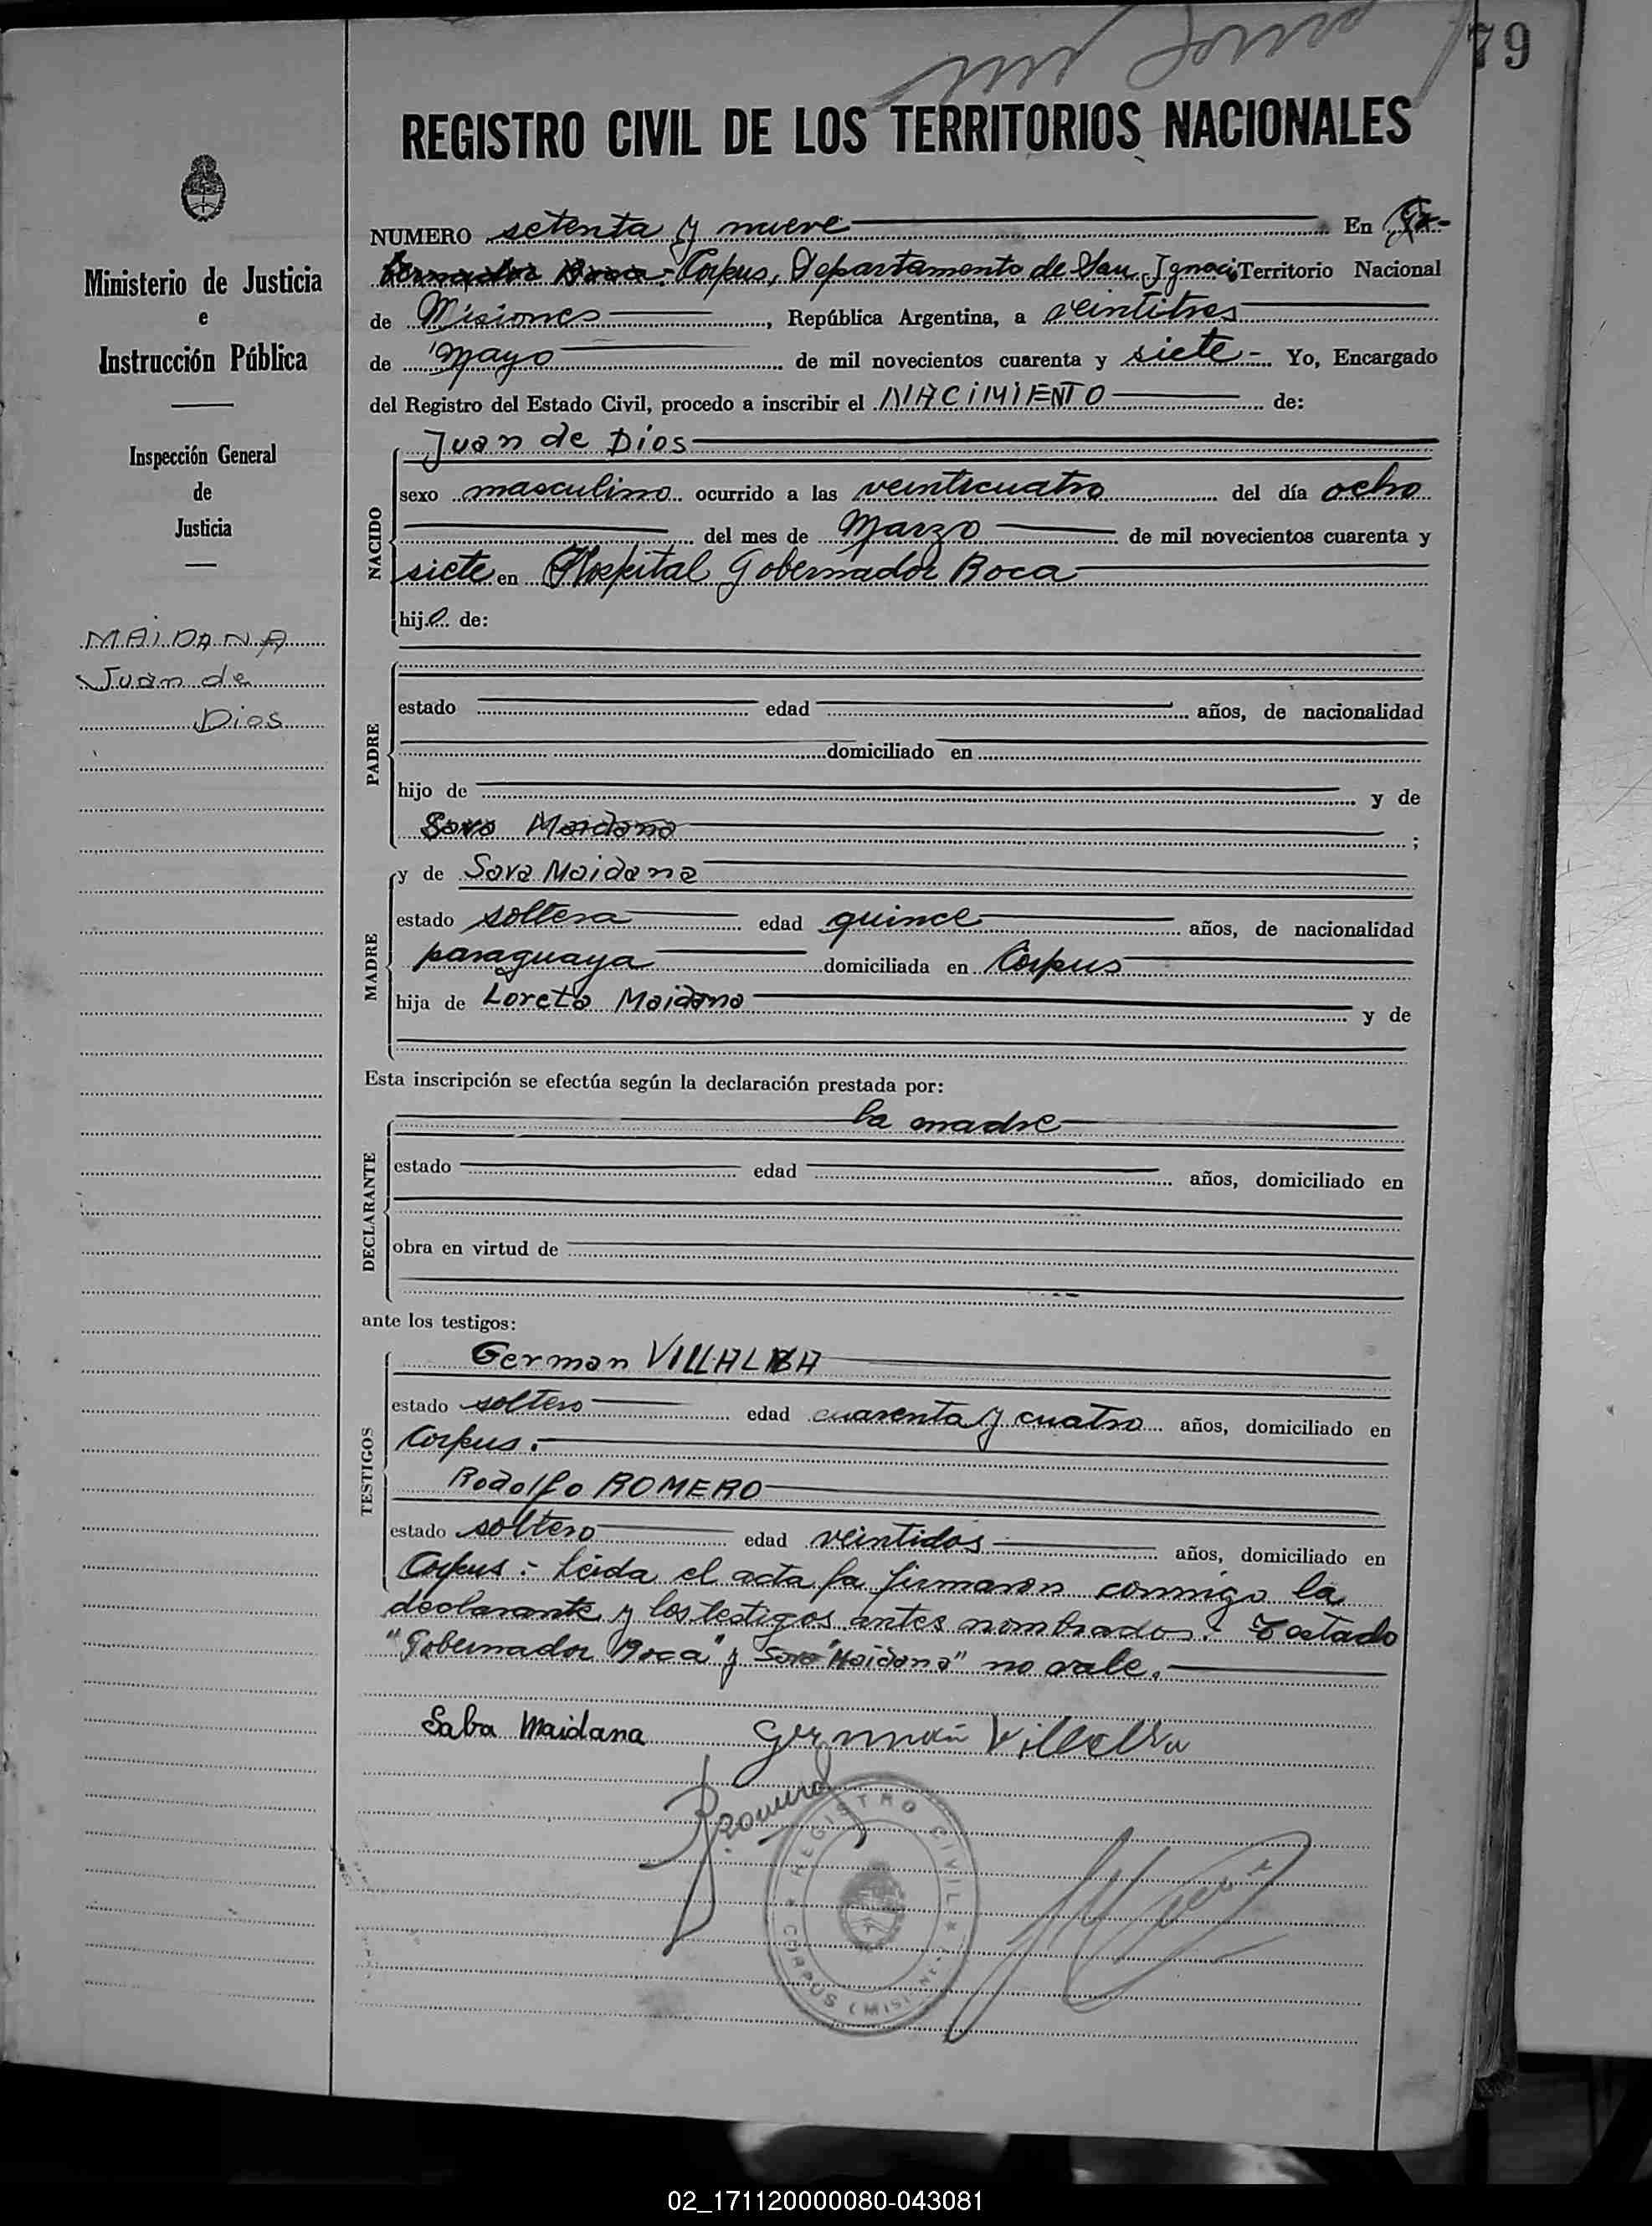 79
REGISTRO CIVIL DE LOS TERRITORIOS NACIONALES
Ministerio de Justicia
e
Instrucción Pública
Inspección General
de
Justicia
MAIDANA
Juan de
Dios
NUMERO setenta y nueve En Go-
bernador Roca - Corpus, Departamento de San Ignacio Territorio Nacional
de Misiones, República Argentina, a veintitres
de Mayo de mil novecientos cuarenta y siete - Yo, Encargado
del Registro del Estado Civil, procedo a inscribir el NACIMIENTO de:
NACIDO
Juan de Dios
sexo masculino ocurrido a las veinticuatro del día ocho
del mes de Marzo de mil novecientos cuarenta y
siete en Hospital Gobernador Roca
hijo de:
PADRE
estado edad años, de nacionalidad
domiciliado en
hijo de y de
Sara Maidana ;
MADRE
y de Sara Maidana
estado soltera edad quince años, de nacionalidad
paraguaya domiciliada en Corpus
hija de Loreto Maidana y de
Esta inscripción se efectúa según la declaración prestada por:
DECLARANTE
la madre
estado edad años, domiciliado en
obra en virtud de
ante los testigos:
TESTIGOS
German VILLALBA
estado soltero edad cuarenta y cuatro años, domiciliado en
Corpus.
Rodolfo ROMERO
estado soltero edad veintidos años, domiciliado en
Corpus :- Leida el acta la firmaron conmigo la
declarante y los testigos antes nombrados. Testado
"Gobernador Roca" y Sara "Maidana" no vale.
Saba Maidana German Villalba
R Romero
REGISTRO CIVIL
CORPUS (MISIONES)
02_171120000080-043081